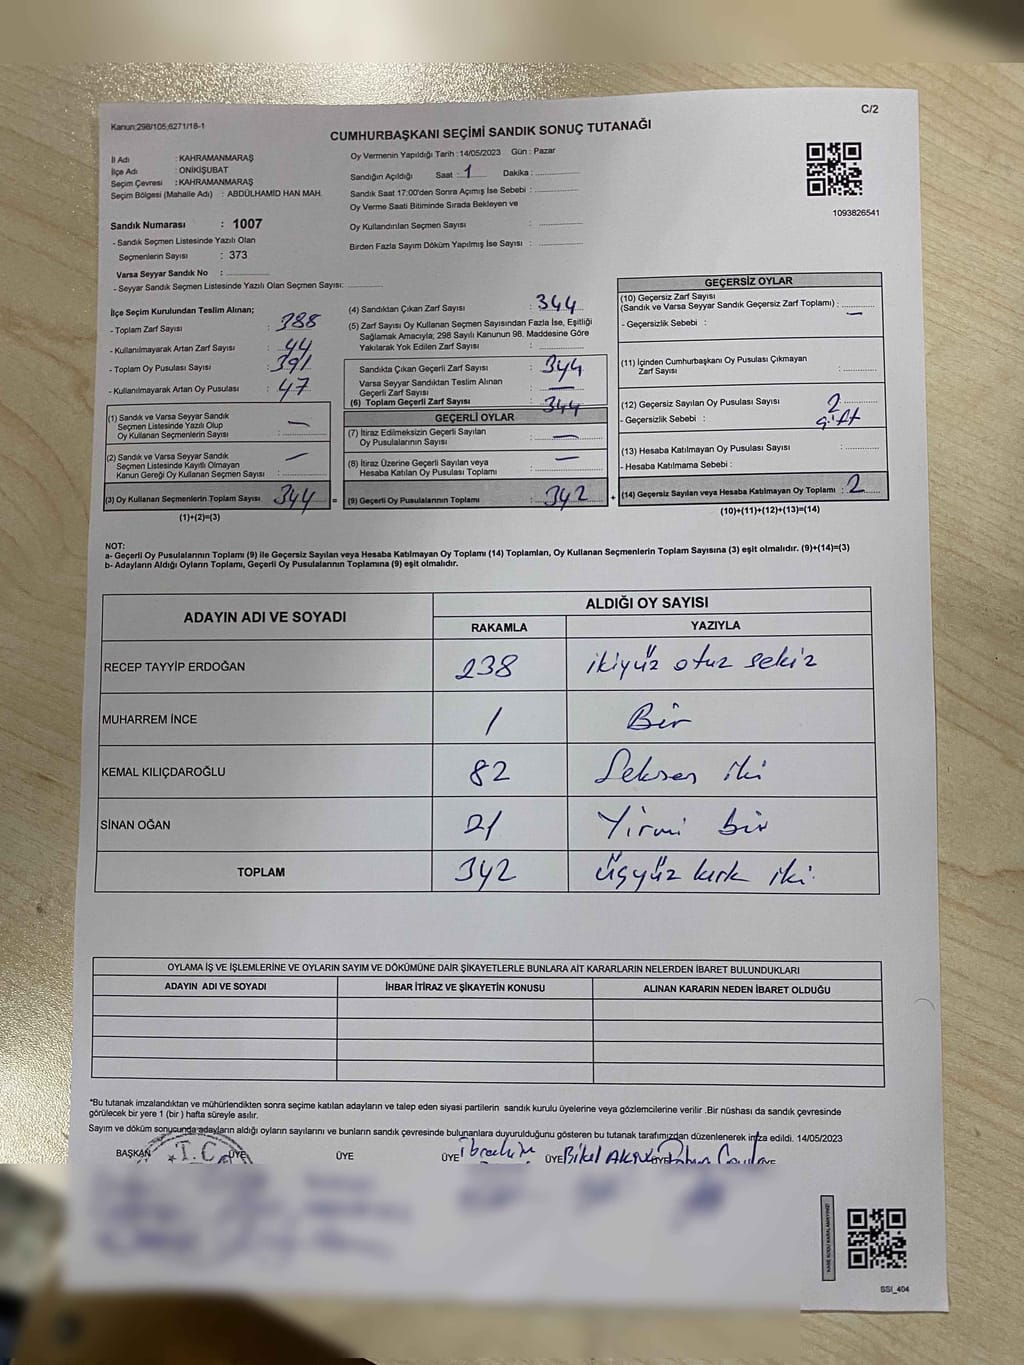 C/2
Kanun;298/105;6271/18-1
CUMHURBAŞKANI SEÇİMİ SANDIK SONUÇ TUTANAĞI
İl Adı : KAHRAMANMARAŞ
İlçe Adı : ONİKİŞUBAT
Seçim Çevresi : KAHRAMANMARAŞ
Seçim Bölgesi (Mahalle Adı) : ABDÜLHAMİD HAN MAH.
Oy Vermenin Yapıldığı Tarih : 14/05/2023 Gün : Pazar
Sandığın Açıldığı Saat : 1 Dakika :
Sandık Saat 17:00'den Sonra Açımış İse Sebebi :
Oy Verme Saati Bitiminde Sırada Bekleyen ve
Oy Kullandırılan Seçmen Sayısı :
Birden Fazla Sayım Döküm Yapılmış İse Sayısı :
1093826541
Sandık Numarası : 1007
- Sandık Seçmen Listesinde Yazılı Olan
Seçmenlerin Sayısı : 373
Varsa Seyyar Sandık No :
- Seyyar Sandık Seçmen Listesinde Yazılı Olan Seçmen Sayısı:
İlçe Seçim Kurulundan Teslim Alınan;
- Toplam Zarf Sayısı : 388
- Kullanılmayarak Artan Zarf Sayısı : 44
- Toplam Oy Pusulası Sayısı : 391
- Kullanılmayarak Artan Oy Pusulası : 47
(1) Sandık ve Varsa Seyyar Sandık
Seçmen Listesinde Yazılı Olup
Oy Kullanan Seçmenlerin Sayısı : —
(2) Sandık ve Varsa Seyyar Sandık
Seçmen Listesinde Kayıtlı Olmayan
Kanun Gereği Oy Kullanan Seçmen Sayısı : —
(3) Oy Kullanan Seçmenlerin Toplam Sayısı : 344 =
(1)+(2)=(3)
(4) Sandıktan Çıkan Zarf Sayısı : 344
(5) Zarf Sayısı Oy Kullanan Seçmen Sayısından Fazla İse, Eşitliği
Sağlamak Amacıyla; 298 Sayılı Kanunun 98. Maddesine Göre
Yakılarak Yok Edilen Zarf Sayısı :
Sandıkta Çıkan Geçerli Zarf Sayısı : 344
Varsa Seyyar Sandıktan Teslim Alınan
Geçerli Zarf Sayısı : —
(6) Toplam Geçerli Zarf Sayısı : 344
GEÇERLİ OYLAR
(7) İtiraz Edilmeksizin Geçerli Sayılan
Oy Pusulalarının Sayısı : —
(8) İtiraz Üzerine Geçerli Sayılan veya
Hesaba Katılan Oy Pusulası Toplamı : —
(9) Geçerli Oy Pusulalarının Toplamı : 342 +
GEÇERSİZ OYLAR
(10) Geçersiz Zarf Sayısı
(Sandık ve Varsa Seyyar Sandık Geçersiz Zarf Toplamı) : —
- Geçersizlik Sebebi :
(11) İçinden Cumhurbaşkanı Oy Pusulası Çıkmayan
Zarf Sayısı :
(12) Geçersiz Sayılan Oy Pusulası Sayısı : 2
- Geçersizlik Sebebi : çift
(13) Hesaba Katılmayan Oy Pusulası Sayısı :
- Hesaba Katılmama Sebebi :
(14) Geçersiz Sayılan veya Hesaba Katılmayan Oy Toplamı : 2
(10)+(11)+(12)+(13)=(14)
NOT:
a- Geçerli Oy Pusulalarının Toplamı (9) ile Geçersiz Sayılan veya Hesaba Katılmayan Oy Toplamı (14) Toplamları, Oy Kullanan Seçmenlerin Toplam Sayısına (3) eşit olmalıdır. (9)+(14)=(3)
b- Adayların Aldığı Oyların Toplamı, Geçerli Oy Pusulalarının Toplamına (9) eşit olmalıdır.
ADAYIN ADI VE SOYADI ALDIĞI OY SAYISI
RAKAMLA YAZIYLA
RECEP TAYYİP ERDOĞAN 238 ikiyüz otuz sekiz
MUHARREM İNCE 1 Bir
KEMAL KILIÇDAROĞLU 82 Seksen iki
SİNAN OĞAN 21 Yirmi bir
TOPLAM 342 üçyüz kırk iki
OYLAMA İŞ VE İŞLEMLERİNE VE OYLARIN SAYIM VE DÖKÜMÜNE DAİR ŞİKAYETLERLE BUNLARA AİT KARARLARIN NELERDEN İBARET BULUNDUKLARI
ADAYIN ADI VE SOYADI İHBAR İTİRAZ VE ŞİKAYETİN KONUSU ALINAN KARARIN NEDEN İBARET OLDUĞU
"Bu tutanak imzalandıktan ve mühürlendikten sonra seçime katılan adayların ve talep eden siyasi partilerin sandık kurulu üyelerine veya gözlemcilerine verilir .Bir nüshası da sandık çevresinde
görülecek bir yere 1 (bir ) hafta süreyle asılır.
Sayım ve döküm sonucunda adayların aldığı oyların sayılarını ve bunların sandık çevresinde bulunanlara duyurulduğunu gösteren bu tutanak tarafımızdan düzenlenerek imza edildi. 14/05/2023
BAŞKAN T.C. ÜYE ÜYE ÜYE İbrahim ÜYE
SSI_404